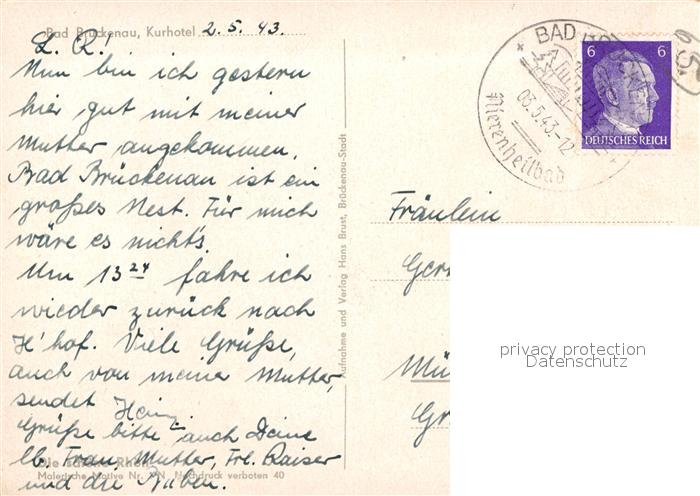 Bad Brückenau, Kurhotel 2.5.43.
L. R!
Nun bin ich gestern
hier gut mit meiner
Mutter angekommen.
Bad Brückenau ist ein
großes Nest. Für mich
wäre es nichts.
Um 13 24 fahre ich
wieder zurück nach
H'hof. Viele Grüße,
auch von meiner Mutter,
sendet Heinz
Grüße bitte auch Deine
lb. Frau Mutter, Frl. Kaiser
und die Buben.
Die schöne Rhön
Malerische Motive Nr. Nachdruck verboten 40
Aufnahme und Verlag Hans Brust, Brückenau-Stadt
BAD
03.5.43.-12
Nierenheilbad
6 6
DEUTSCHES REICH
Fräulein
Ger
Mü
Gr
privacy protection
Datenschutz